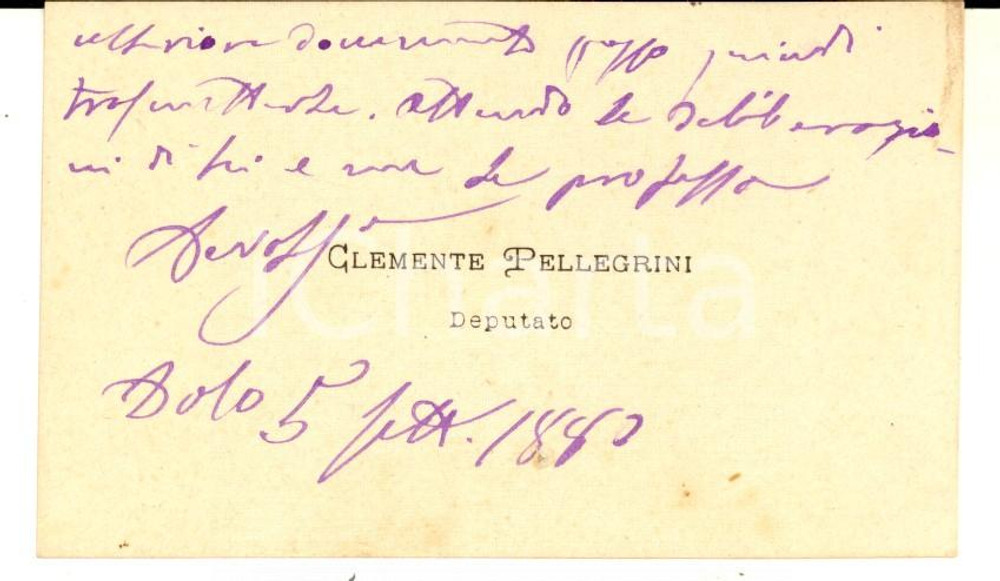 ulteriore documento posso quindi
trasmetterle. Attendo le deliberazio-
ni di Lei e me Le professo
Devot.
CLEMENTE PELLEGRINI
Deputato
Dolo 5 sett. 188
iCharta